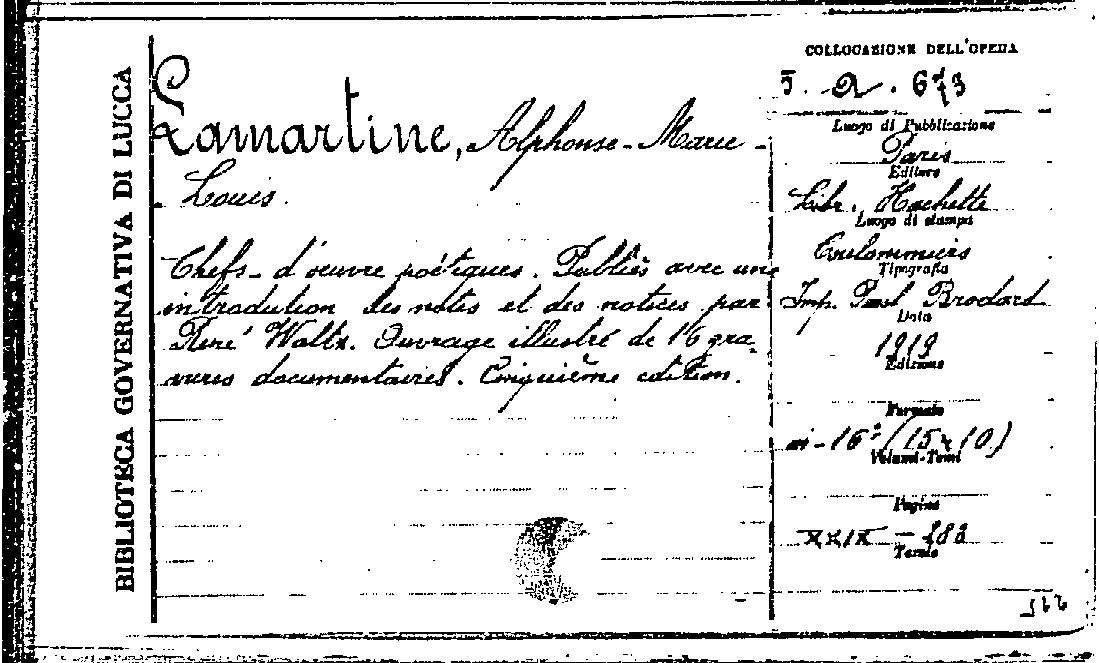 BIBLIOTECA GOVERNATIVA DI LUCCA
Lamartine, Alphonse-Marie-
Louis.
Chefs-d'œuvre poétiques. Publiés avec une
introdution des notes et des notices par
René Waltz. Ouvrage illustré de 16 gra-
vures documentaires. Cinquième edition.
COLLOCAZIONE DELL'OPERA
I. 673
Luogo di Pubblicazione
Paris
Editore
Libr. Hachette
Luogo di stampa
Coulommiers
Tipografia
Imp. Paul Brodard
Data
1919
Edizione
Formato
in-16º (15x10)
Volumi-Tomi
Pagine
XXIX -
Tavole